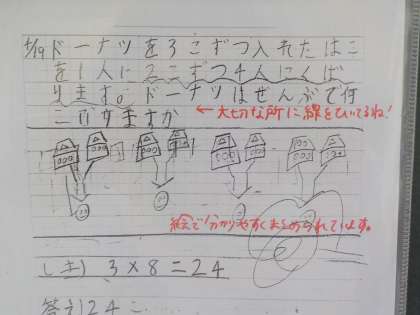 4/19 ドーナツを3こずつ入れたはこ
を1人に2こずつ4人にくば
ります。ドーナツはぜんぶで何
こひつようですか
←大切な所に線をひいてるね!
絵で分かりやすくまとめられています。
しき) 3×8=24
答え)24こ